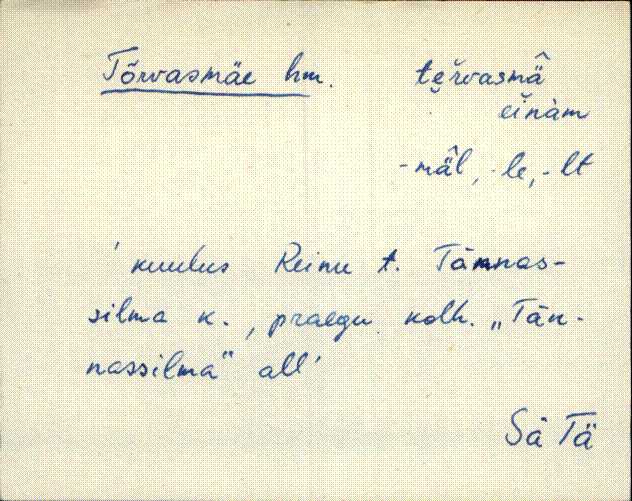 Tõrvasmäe hm. te̮rvasmä̂
einàm
-mä̂l, -le, -lt
' kuulus Reinu t. Tännas-
silma k., praegu kolh. „Tän-
nassilma" all'
Sä Tä